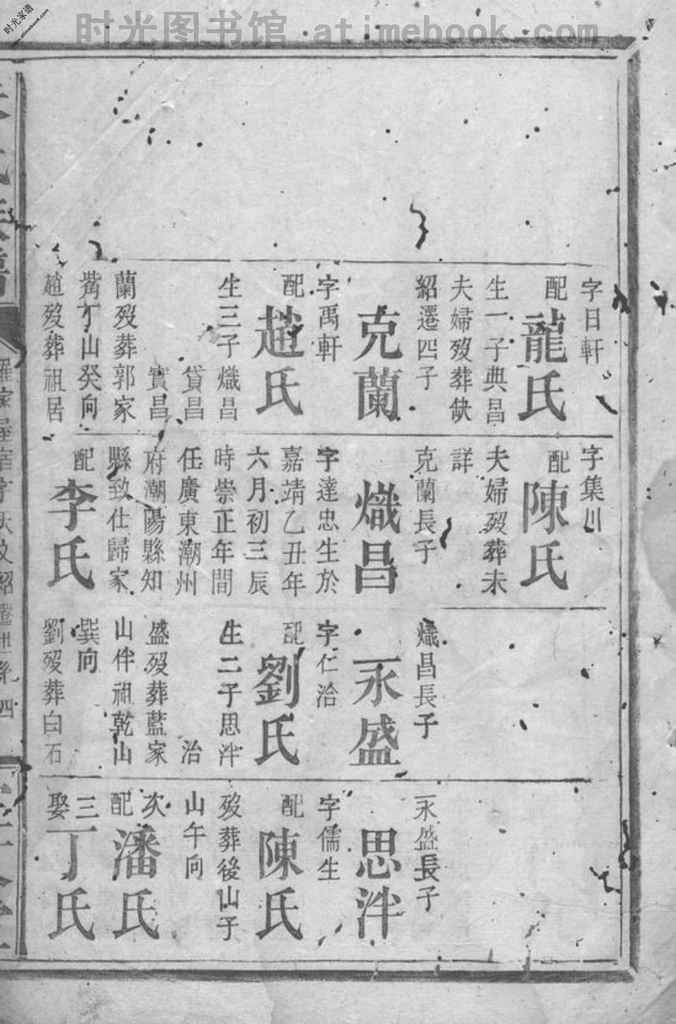 时光图书馆 · atimebook.com
时光家谱
字日軒
配
龍氏
生一子典昌
夫婦歿葬缺
紹遷四子
克蘭
字禹軒
配
趙氏
生三子熾昌
貸昌
實昌
蘭歿葬郭家
嘴丁山癸向
趙歿葬祖居
字集川
配
陳氏
夫婦歿葬未
詳
克蘭長子
熾昌
字達忠生於
嘉靖乙丑年
六月初三辰
時崇正年間
任廣東潮州
府潮陽縣知
縣致仕歸家
配
李氏
熾昌長子
永盛
字仁洽
配
劉氏
生二子思泮
治
盛歿葬藍家
山伴祖乾山
巽向
劉歿葬白石
永盛長子
思泮
字儒生
配
陳氏
歿葬後山子
山午向
次配
潘氏
三娶
丁氏